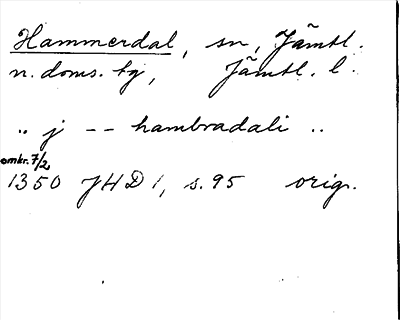 Hammerdal, sn, Jämtl.
n. doms. tg, Jämtl. l.
.. j -- hambradali ..
omkr. 7/2
1350 JHD 1, s. 95 orig.